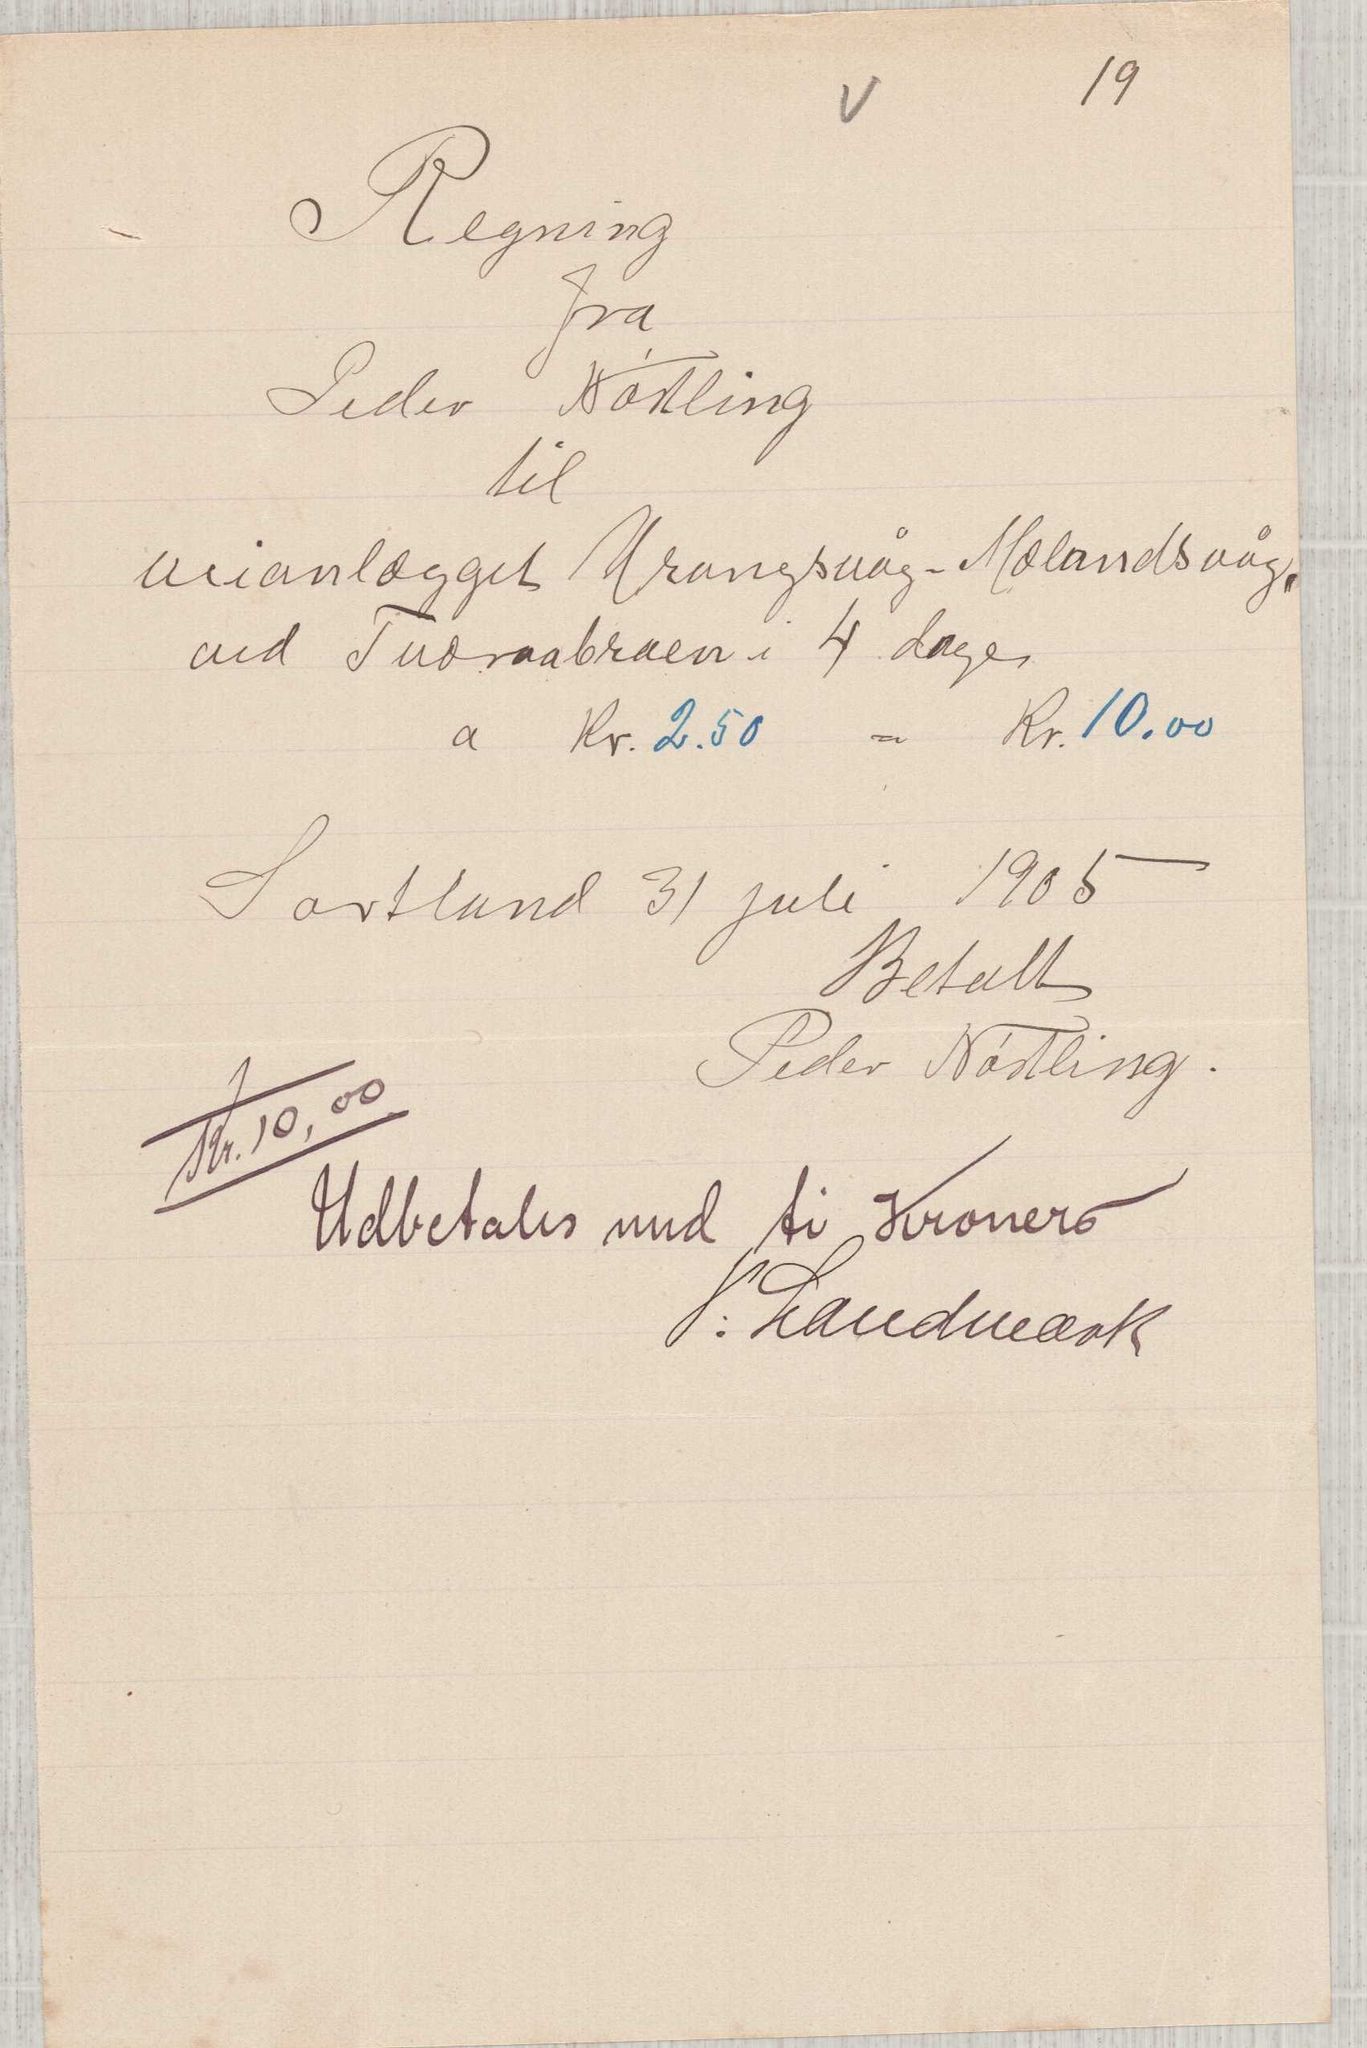 V 19
Regning
fra
Peder Nøstling
til
veianlægget Urangsvåg - Mælandsvåg,
ved Tværaabraen i 4 dage
a Kr. 2.50 = Kr. 10.00
Sortland 31 juli 1905
Betalt
Peder Nøstling.
Kr. 10,00
Udbetales med ti Kroner
V. Landmark